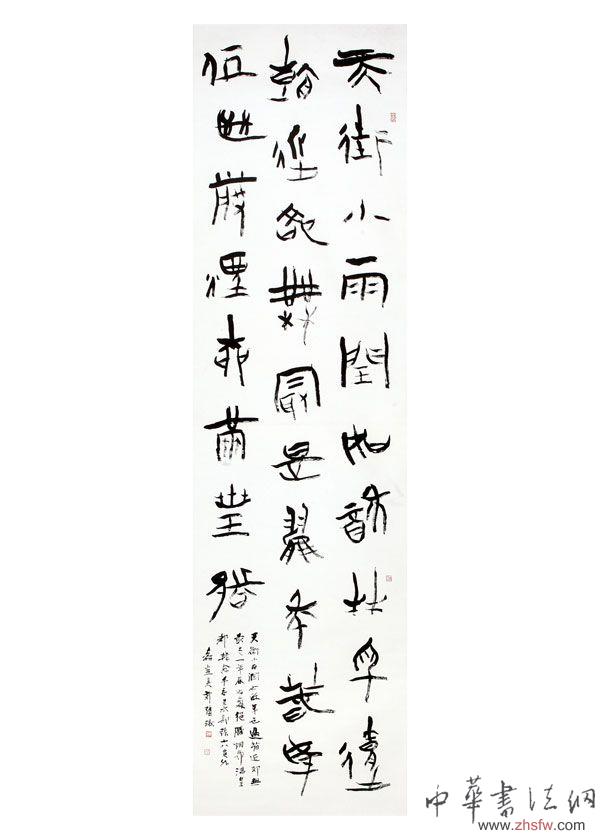 天街小雨潤如酥草色遥
看近却無最是一年春好
處絕勝煙柳滿皇都
天街小雨潤如酥草色遥看近却無
最是一年春好處絕勝烟柳滿皇
都韓愈早春呈水部張十八員外
中華書法網
www.zhsfw.com